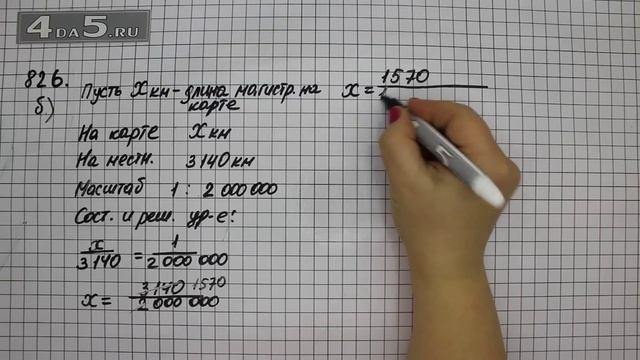 4DA5.RU
826.
б) Пусть X км - длина магистр. на карте
На карте X км
На местн. 3140 км
Масштаб 1 : 2 000 000
Сост. и реш. ур-е:
x/3140 = 1/2 000 000
x = 3140 1570/2 000 000
x = 1570/